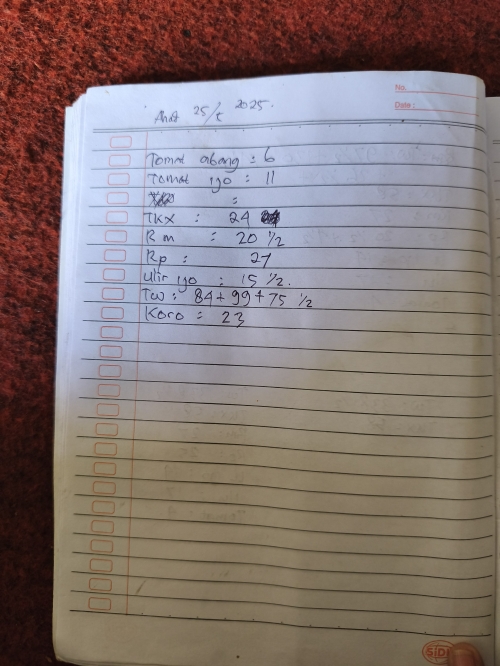 No.
Date :
Ahad 25/5 2025.
Tomat abang : 6
Tomat ijo : 11
:
TKX : 24
Rm : 20 1/2
Rp : 27
Ulir ijo : 15 1/2.
TW : 84 + 99 + 75 1/2
Koro : 23
SiDU